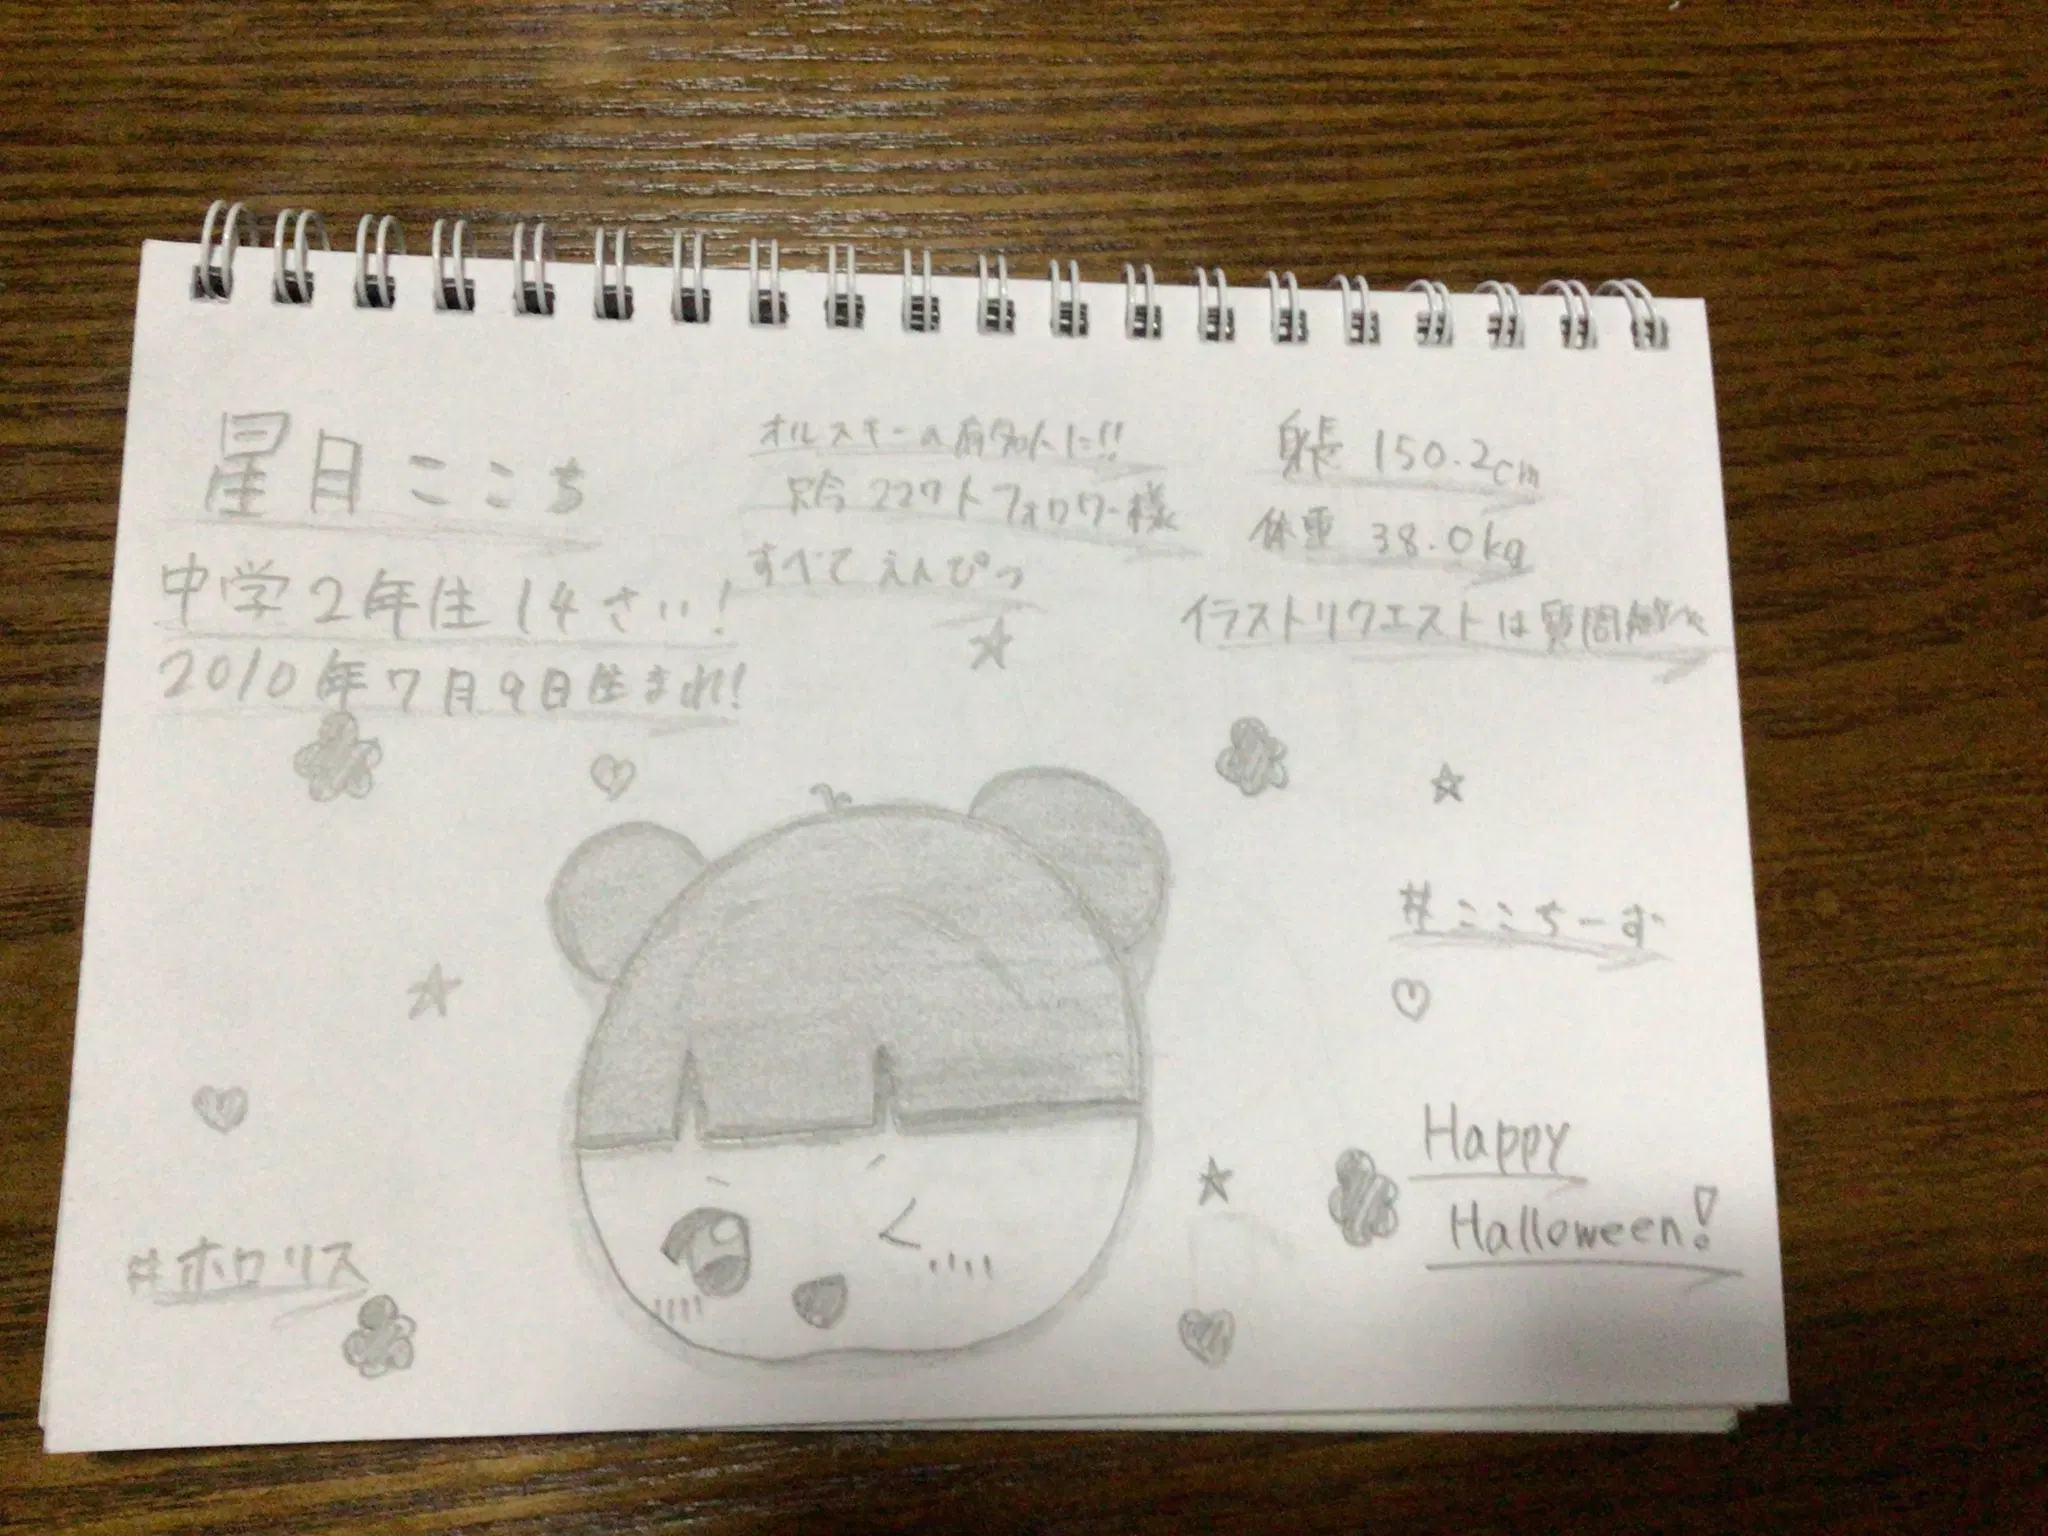 星月ここち
中学2年生14さい!
2010年7月9日生まれ!
オルスキーの有名人に!!
只今227人フォロワー様
すべてえんぴつ
身長 150.2cm
体重 38.0kg
イラストリクエストは質問
#ここちーず
Happy
Halloween!
#ホロリス